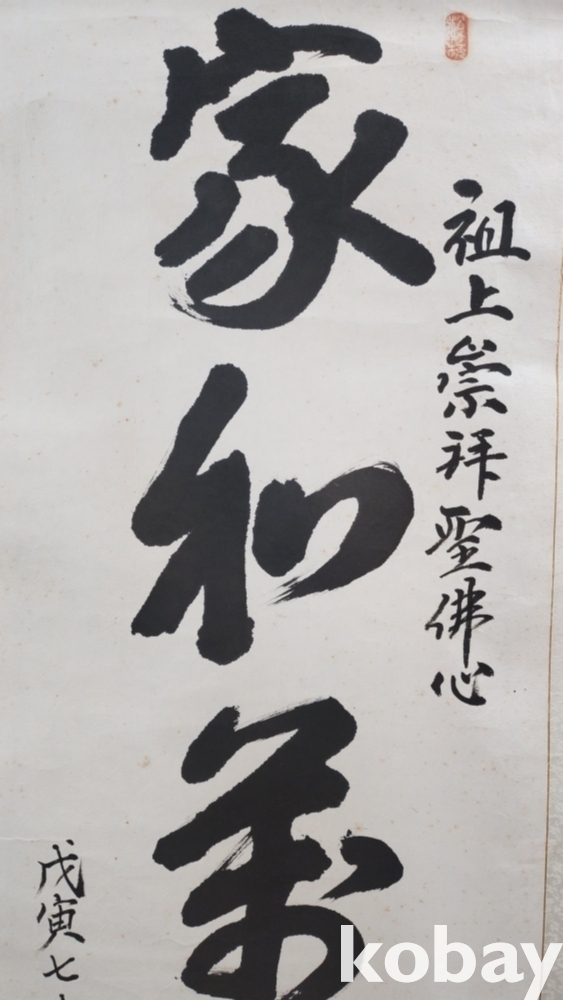 祖上崇拜聖佛心
家和萬
戊寅七
kobay